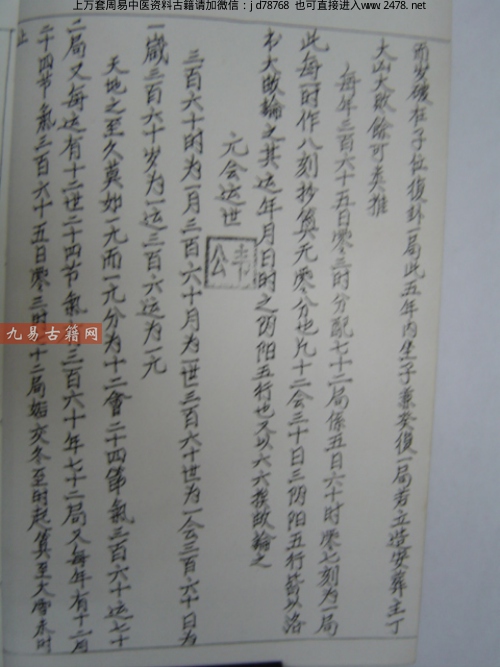 上万套周易中医资料古籍请加微信：jd78768 也可直接进入www.2478.net
而岁破在子位復卦一局此五年内坐子兼癸復一局者立造安葬主丁
大山大败餘可类推
每年三百六十五日零三时分配七十二局係五日六十时零七刻为一局
此每一时作八刻抄算无零分也凡十二会三十日三阴阳五行皆以洛
书大数論之其运年月日时之阴阳五行也又以六六揆数論之
元会运世
三百六十时为一月三百六十月为一世三百六十世为一会三百六十日为
一嵗三百六十岁为一运三百六运为一元
天地之至久莫如一元而一元分为十二會二十四節氣三百六十运七十
二局又每运有十二世二十四节氣三百六十年七十二局又每年有十二月
二十四节氣三百六十五日零三时七十二局始交冬至时起算至大雪末时
止
九易古籍网